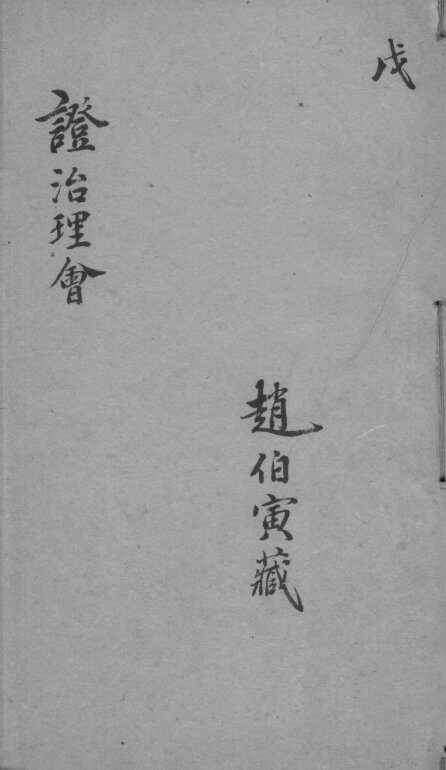 戊
趙伯寅藏
證治理會